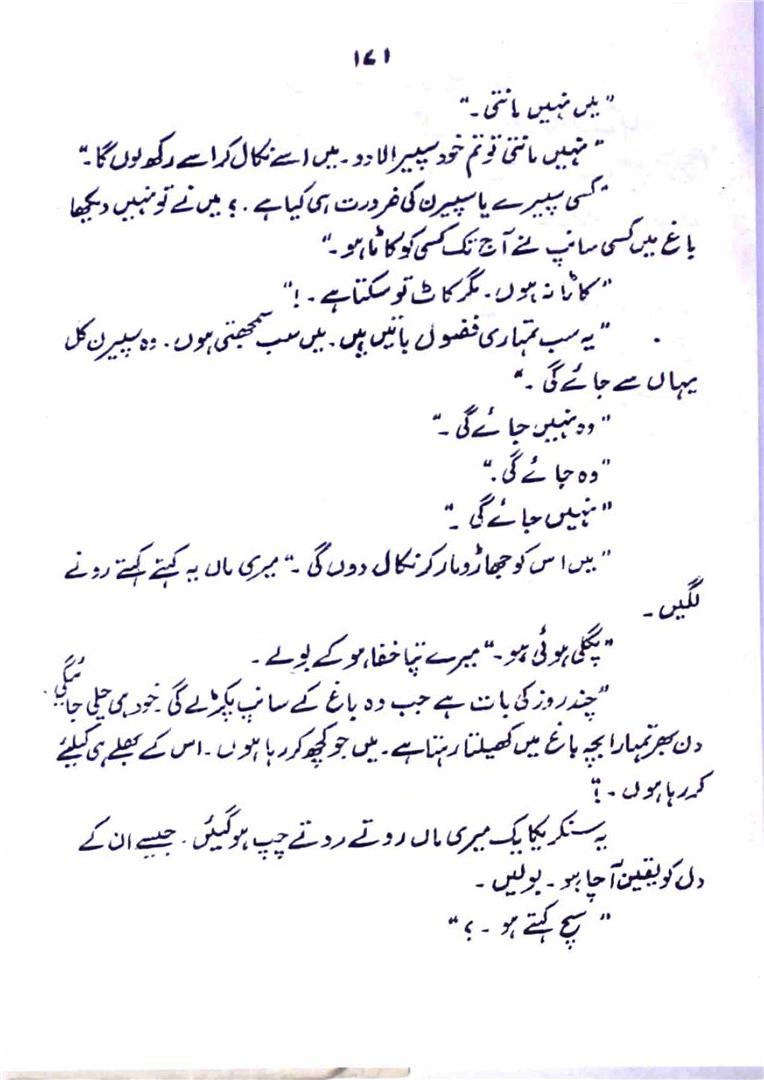 ۱۷۱
"میں نہیں مانتی۔"
"نہیں مانتی تو تم خود سپیرا لا دو۔ میں اسے نکال کر اسے رکھ لوں گا۔"
"کسی سپیرے یا سپیرن کی ضرورت ہی کیا ہے ۔؟ میں نے تو نہیں دیکھا
باغ میں کسی سانپ نے آج تک کسی کو کاٹا ہو۔"
"کاٹا نہ ہوں۔ مگر کاٹ تو سکتا ہے۔!"
"یہ سب تمہاری فضول باتیں ہیں۔ میں سب سمجھتی ہوں۔ وہ سپیرن کل
یہاں سے جائے گی۔"
"وہ نہیں جائے گی۔"
"وہ جائے گی۔"
"نہیں جائے گی۔"
"میں اس کو جھاڑو مار کر نکال دوں گی۔" میری ماں یہ کہتے کہتے رونے
لگیں۔
"پگلی ہوئی ہو۔" میرے پتا خفا ہو کے بولے۔
"چند روز کی بات ہے جب وہ باغ کے سانپ پکڑ لے گی۔ خود ہی چلی جائیگی۔
دن بھر تمہارا بچہ باغ میں کھیلتا رہتا ہے۔ میں جو کچھ کر رہا ہوں۔ اس کے بھلے ہی کیلئے
کر رہا ہوں۔!"
یہ سنکر یکایک میری ماں روتے روتے چپ ہو گئیں۔ جیسے ان کے
دل کو یقین آ چلا ہو۔ بولیں۔
"سچ کہتے ہو۔؟"